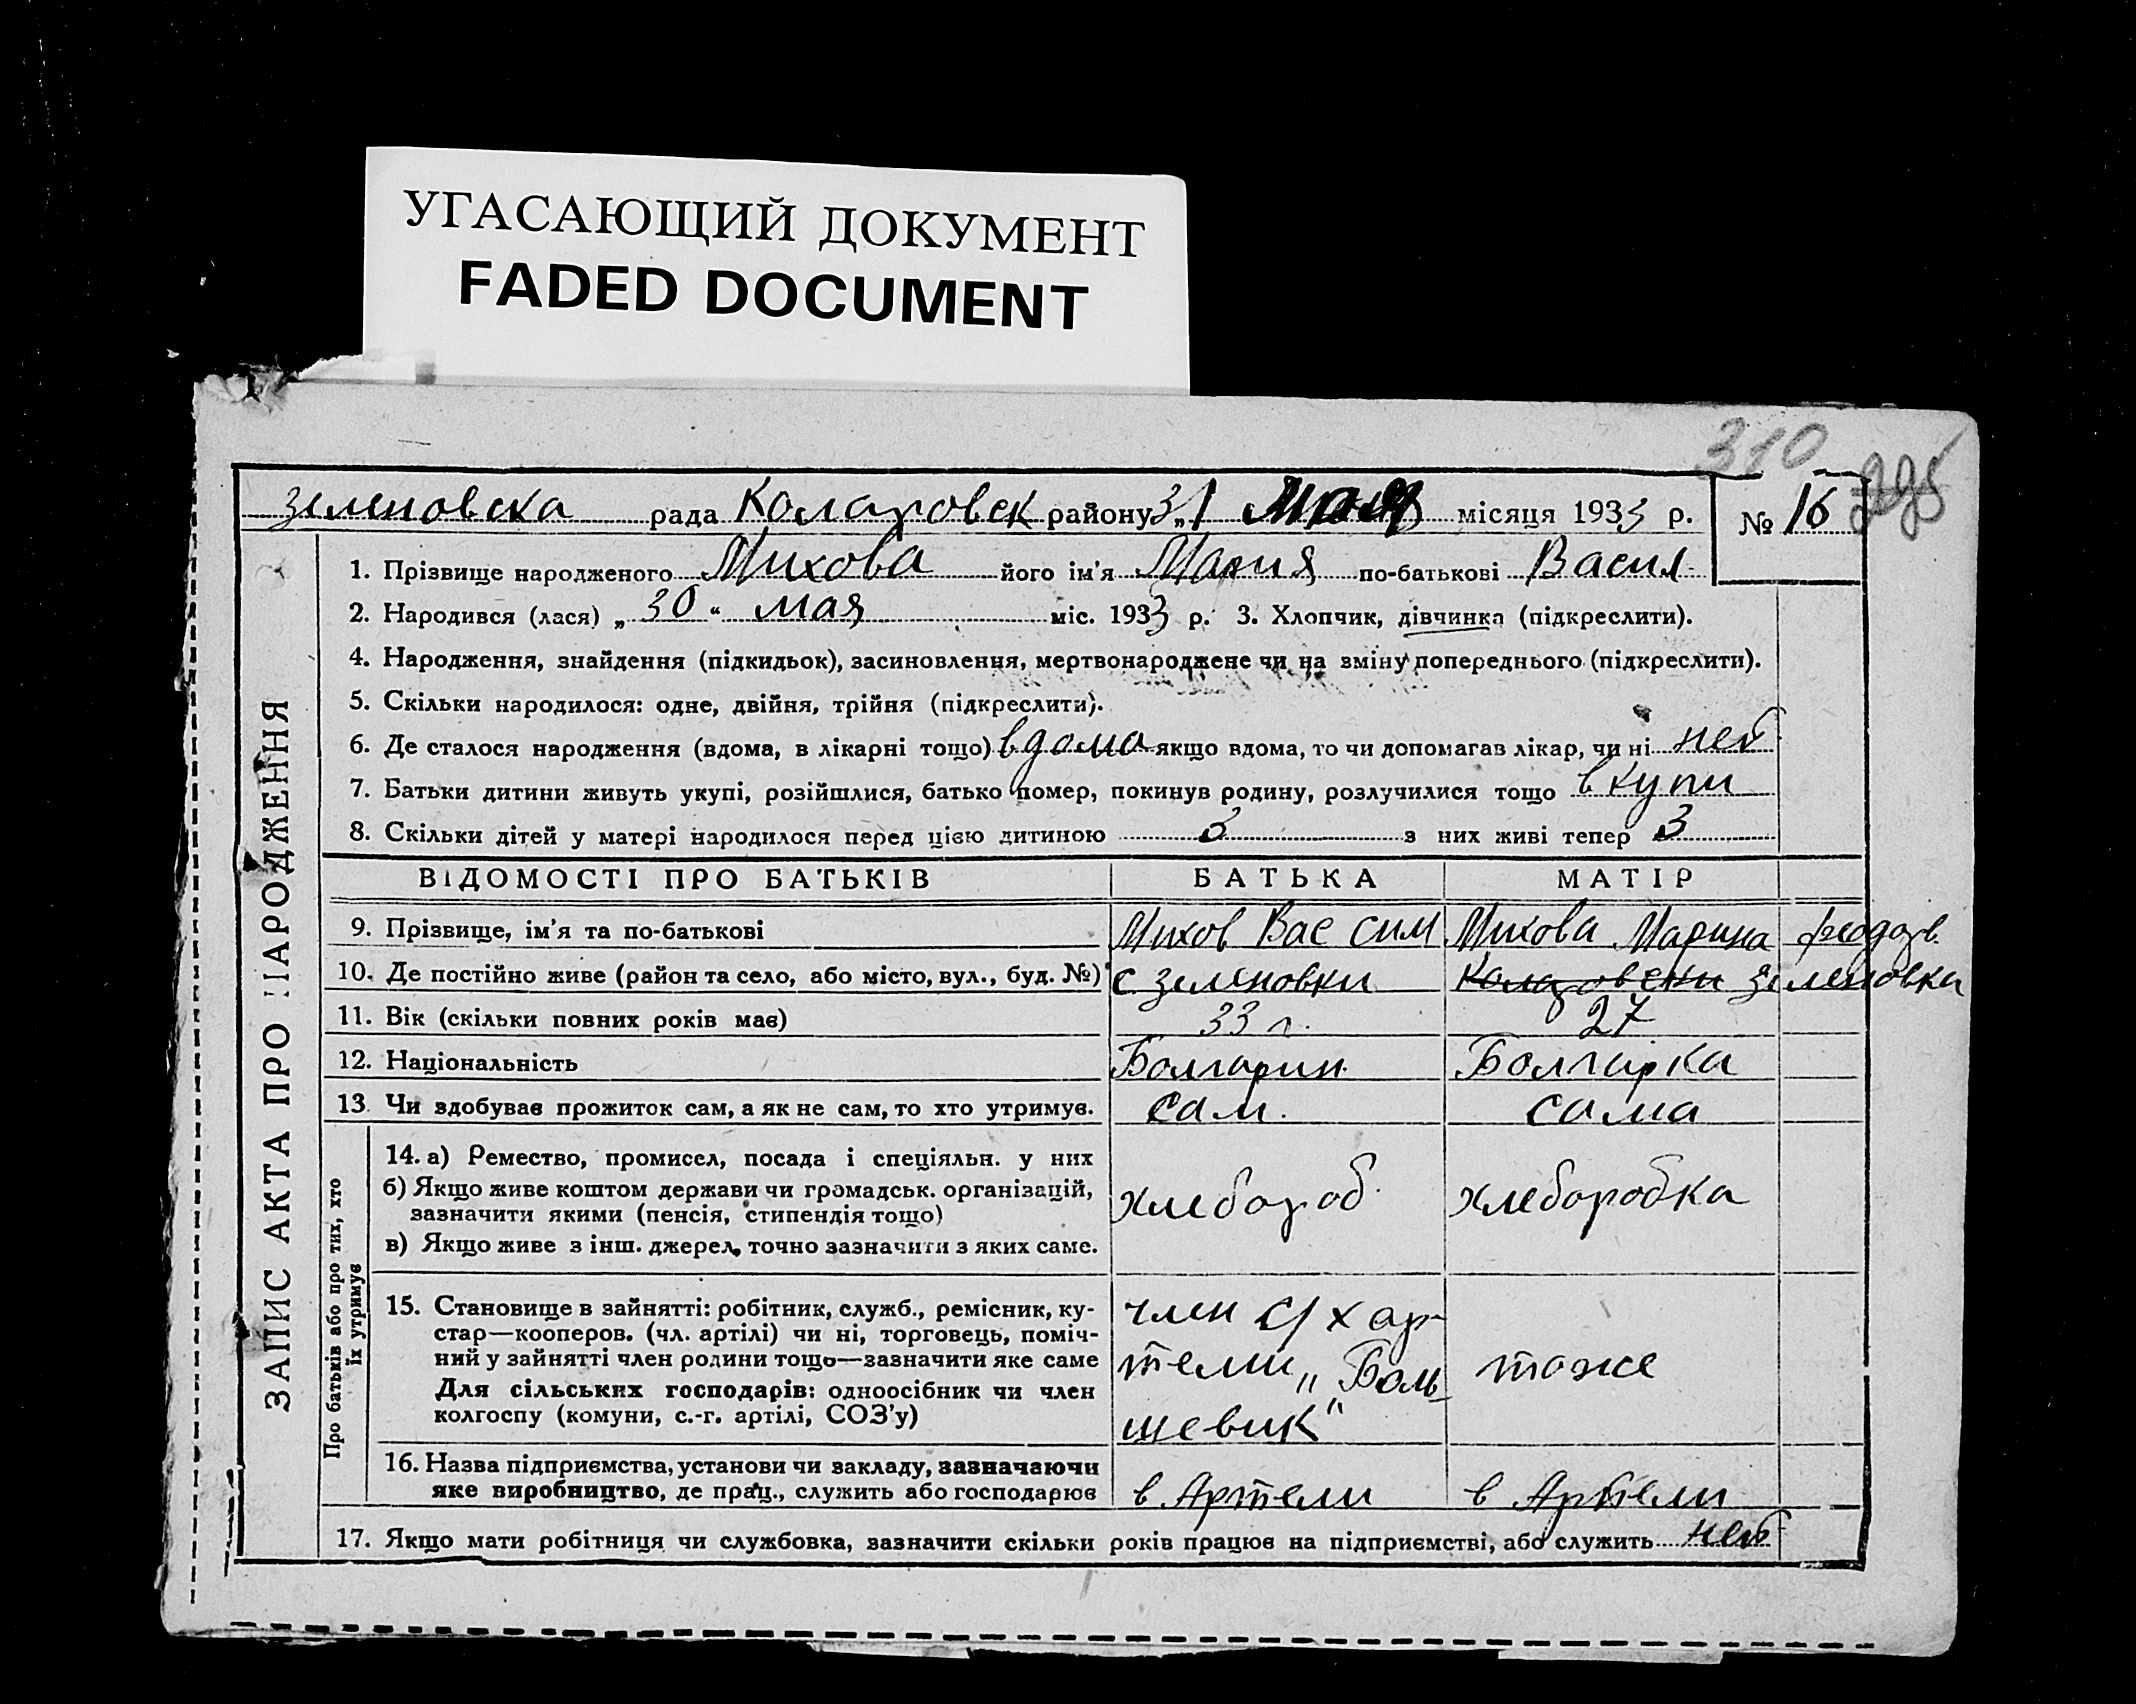 УГАСАЮЩИЙ ДОКУМЕНТ
FADED DOCUMENT
310
зеленовска рада Коларовск району 31 мая місяця 1933 р. № 16
ЗАПИС АКТА ПРО НАРОДЖЕННЯ
1. Прізвище народженого Михова його ім'я Мария по-батькові Васил
2. Народився (лася) „30“ мая міс. 1933 р. 3. Хлопчик, дівчинка (підкреслити).
4. Народження, знайдення (підкидьок), засиновлення, мертвонароджене чи на зміну попереднього (підкреслити).
5. Скільки народилося: одне, двійня, трійня (підкреслити).
6. Де сталося народження (вдома, в лікарні тощо) вдома якщо вдома, то чи допомагав лікар, чи ні нет
7. Батьки дитини живуть укупі, розійшлися, батько помер, покинув родину, розлучилися тощо вкупи
8. Скільки дітей у матері народилося перед цією дитиною 3 з них живі тепер 3
ВІДОМОСТІ ПРО БАТЬКІВ БАТЬКА МАТІР
9. Прізвище, ім'я та по-батькові Михов Вас сим Михова Марина феодов.
10. Де постійно живе (район та село, або місто, вул., буд. №) с зеленовки зеленовка
11. Вік (скільки повних років має) 33 г. 27
12. Національність Болгарин. Болгарка
13. Чи здобуває прожиток сам, а як не сам, то хто утримує. сам. сама
Про батьків або про тих, хто їх утримує
14. а) Ремество, промисел, посада і спеціяльн. у них
б) Якщо живе коштом держави чи громадськ. організацій,
зазначити якими (пенсія, стипендія тощо) хлебороб. хлеборобка
в) Якщо живе з інш. джерел, точно зазначити з яких саме.
15. Становище в зайнятті: робітник, служб., ремісник, ку- член с/х ар-
стар—кооперов. (чл. артілі) чи ні, торговець, поміч-
ний у зайнятті член родини тощо—зазначити яке саме тели „Боль- тоже
Для сільських господарів: одноосібник чи член
колгоспу (комуни, с.-г. артілі, СОЗ'у) шевик“
16. Назва підприємства, установи чи закладу, зазначаючи
яке виробництво, де прац., служить або господарює в Артели в Артели
17. Якщо мати робітниця чи службовка, зазначити скільки років працює на підприємстві, або служить нет